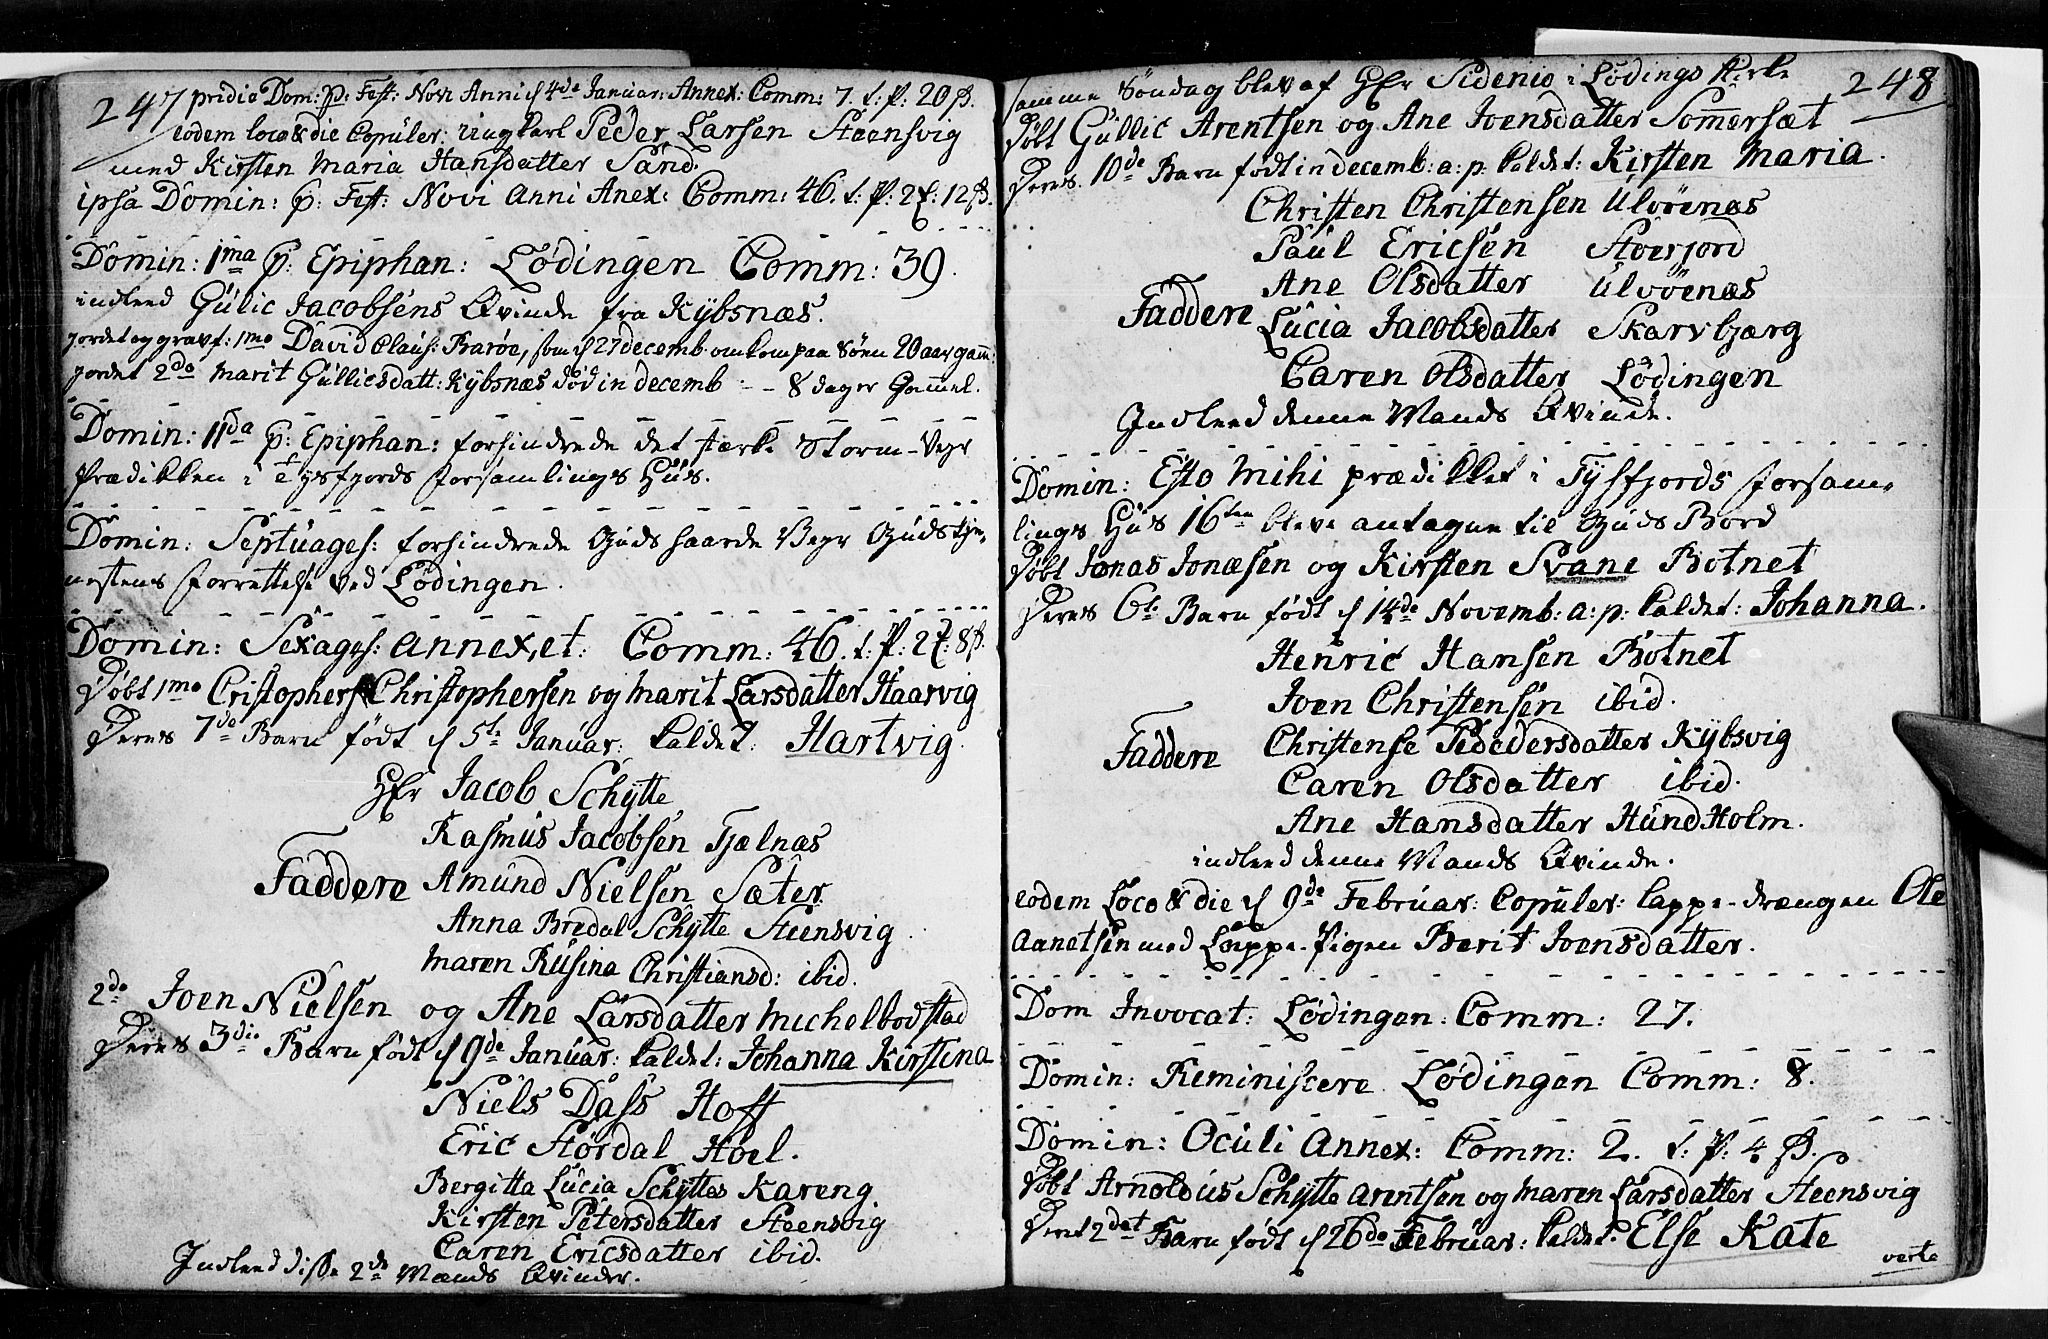 247 pridie Dom: p: Fest: Novi Anni d 4de Januar: Annex: Comm: 7. t: P: 20 ß.
eodem loco & die Copuler: ungkarl Peder Larsen Steensvig
med Kirsten Maria Hansdatter Sand.
ipsa Domin: p: Fest: Novi Anni Anex: Comm: 46. t: P: 2 : 12 ß.
Domin: 1ma p: Epiphan: Lødingen Comm: 39.
indleed Gulic Jacobsens Qvinde fra Kybsnæs.
jordet og gravf: 1mo David Claus: Barøe, som d 27 decemb omkom paa Søen 20 aar gam:
jordet 2do Marit Gullicsdatt: Kybsnæs død in decemb - - 8 dager Gammel.
Domin: 11da p: Epiphan: forhindrede det stærke Storm-Veyr
Prædikken i Tysfjords Forsamlings Hus.
Domin: Septuages: forhindrede Guds haarde Veyr Guds tje-
nestens Forrettelse ved Lødingen.
Domin: Sexages: Annex, et: Comm: 46. t: P: 2 : 8 ß.
Døbt 1mo Cristophers Christophersen og Marit Larsdatter Haarvig
Deres 7de Barn født d 5te Januar: kaldet: Hartvig.
Hr Jacob Schytte
Rasmus Jacobsen Tjælnæs
Faddere Amund Nielsen Sæter
Anna Bredal Schytte Steensvig
Maren Rusina Christiansd: ibid.
2do Joen Nielsen og Ane Larsdatter Michelbodstad
Deres 3die Barn født d 9de Januar: kaldet: Johanna Kirstina
Niels Dass Hoff
Eric Størdal Hoel.
Bergitta Lucia Schyttes Kareng
Kirsten Petersdatter Steensvig
Caren Ericsdatter ibid.
Indleed disse 2de Mænds Qvinder.
samme Søndag blev af Hr Sidenio i Lødings Kirke 248
Døbt Gullic Arentsen og Ane Joensdatter Sommersæt
Deres 10de Barn født in decemb: a: p: kaldet: Kirsten Maria.
Christen Christensen Ulvøenæs
Paul Ericsen Stoerjord
Ane Olsdatter Ulvøenæs
Faddere Lucia Jacobsdatter Skarvbjærg
Caren Olsdatter Lødingen
Indleed denne Mands Qvinde.
Domin: Esto Mihi prædikket i Tysfjords Forsam-
lings Hus 16ten bleve antagne til Guds Bord
Døbt Jonas Jonæsen og Kirsten Svane Botnet
Deres 6te Barn født d 14de Novemb: a: p: kaldet: Johanna.
Henric Hansen Botnet
Joen Christensen ibid.
Faddere Christense Pededersdatter Kybsvig
Caren Olsdatter ibid.
Ane Hansdatter Hundholm.
indleed denne Mands Qvinde.
eodem Loco & die d 9de Februar: Copuler: Lappe-drængen Ole
Aanetsen med Lappe-Pigen Berit Joensdatter.
Dom Invocat: Lødingen: Comm: 27.
Domin: Reminiscere Lødingen Comm: 8.
Domin: Oculi Annex: Comm: 2. t: P: 4 ß.
Døbt Arnoldus Schytte Arentsen og Maren Larsdatter Steensvig
Deres 2det Barn født d 26de Februar: kaldet: Else Kate
verte